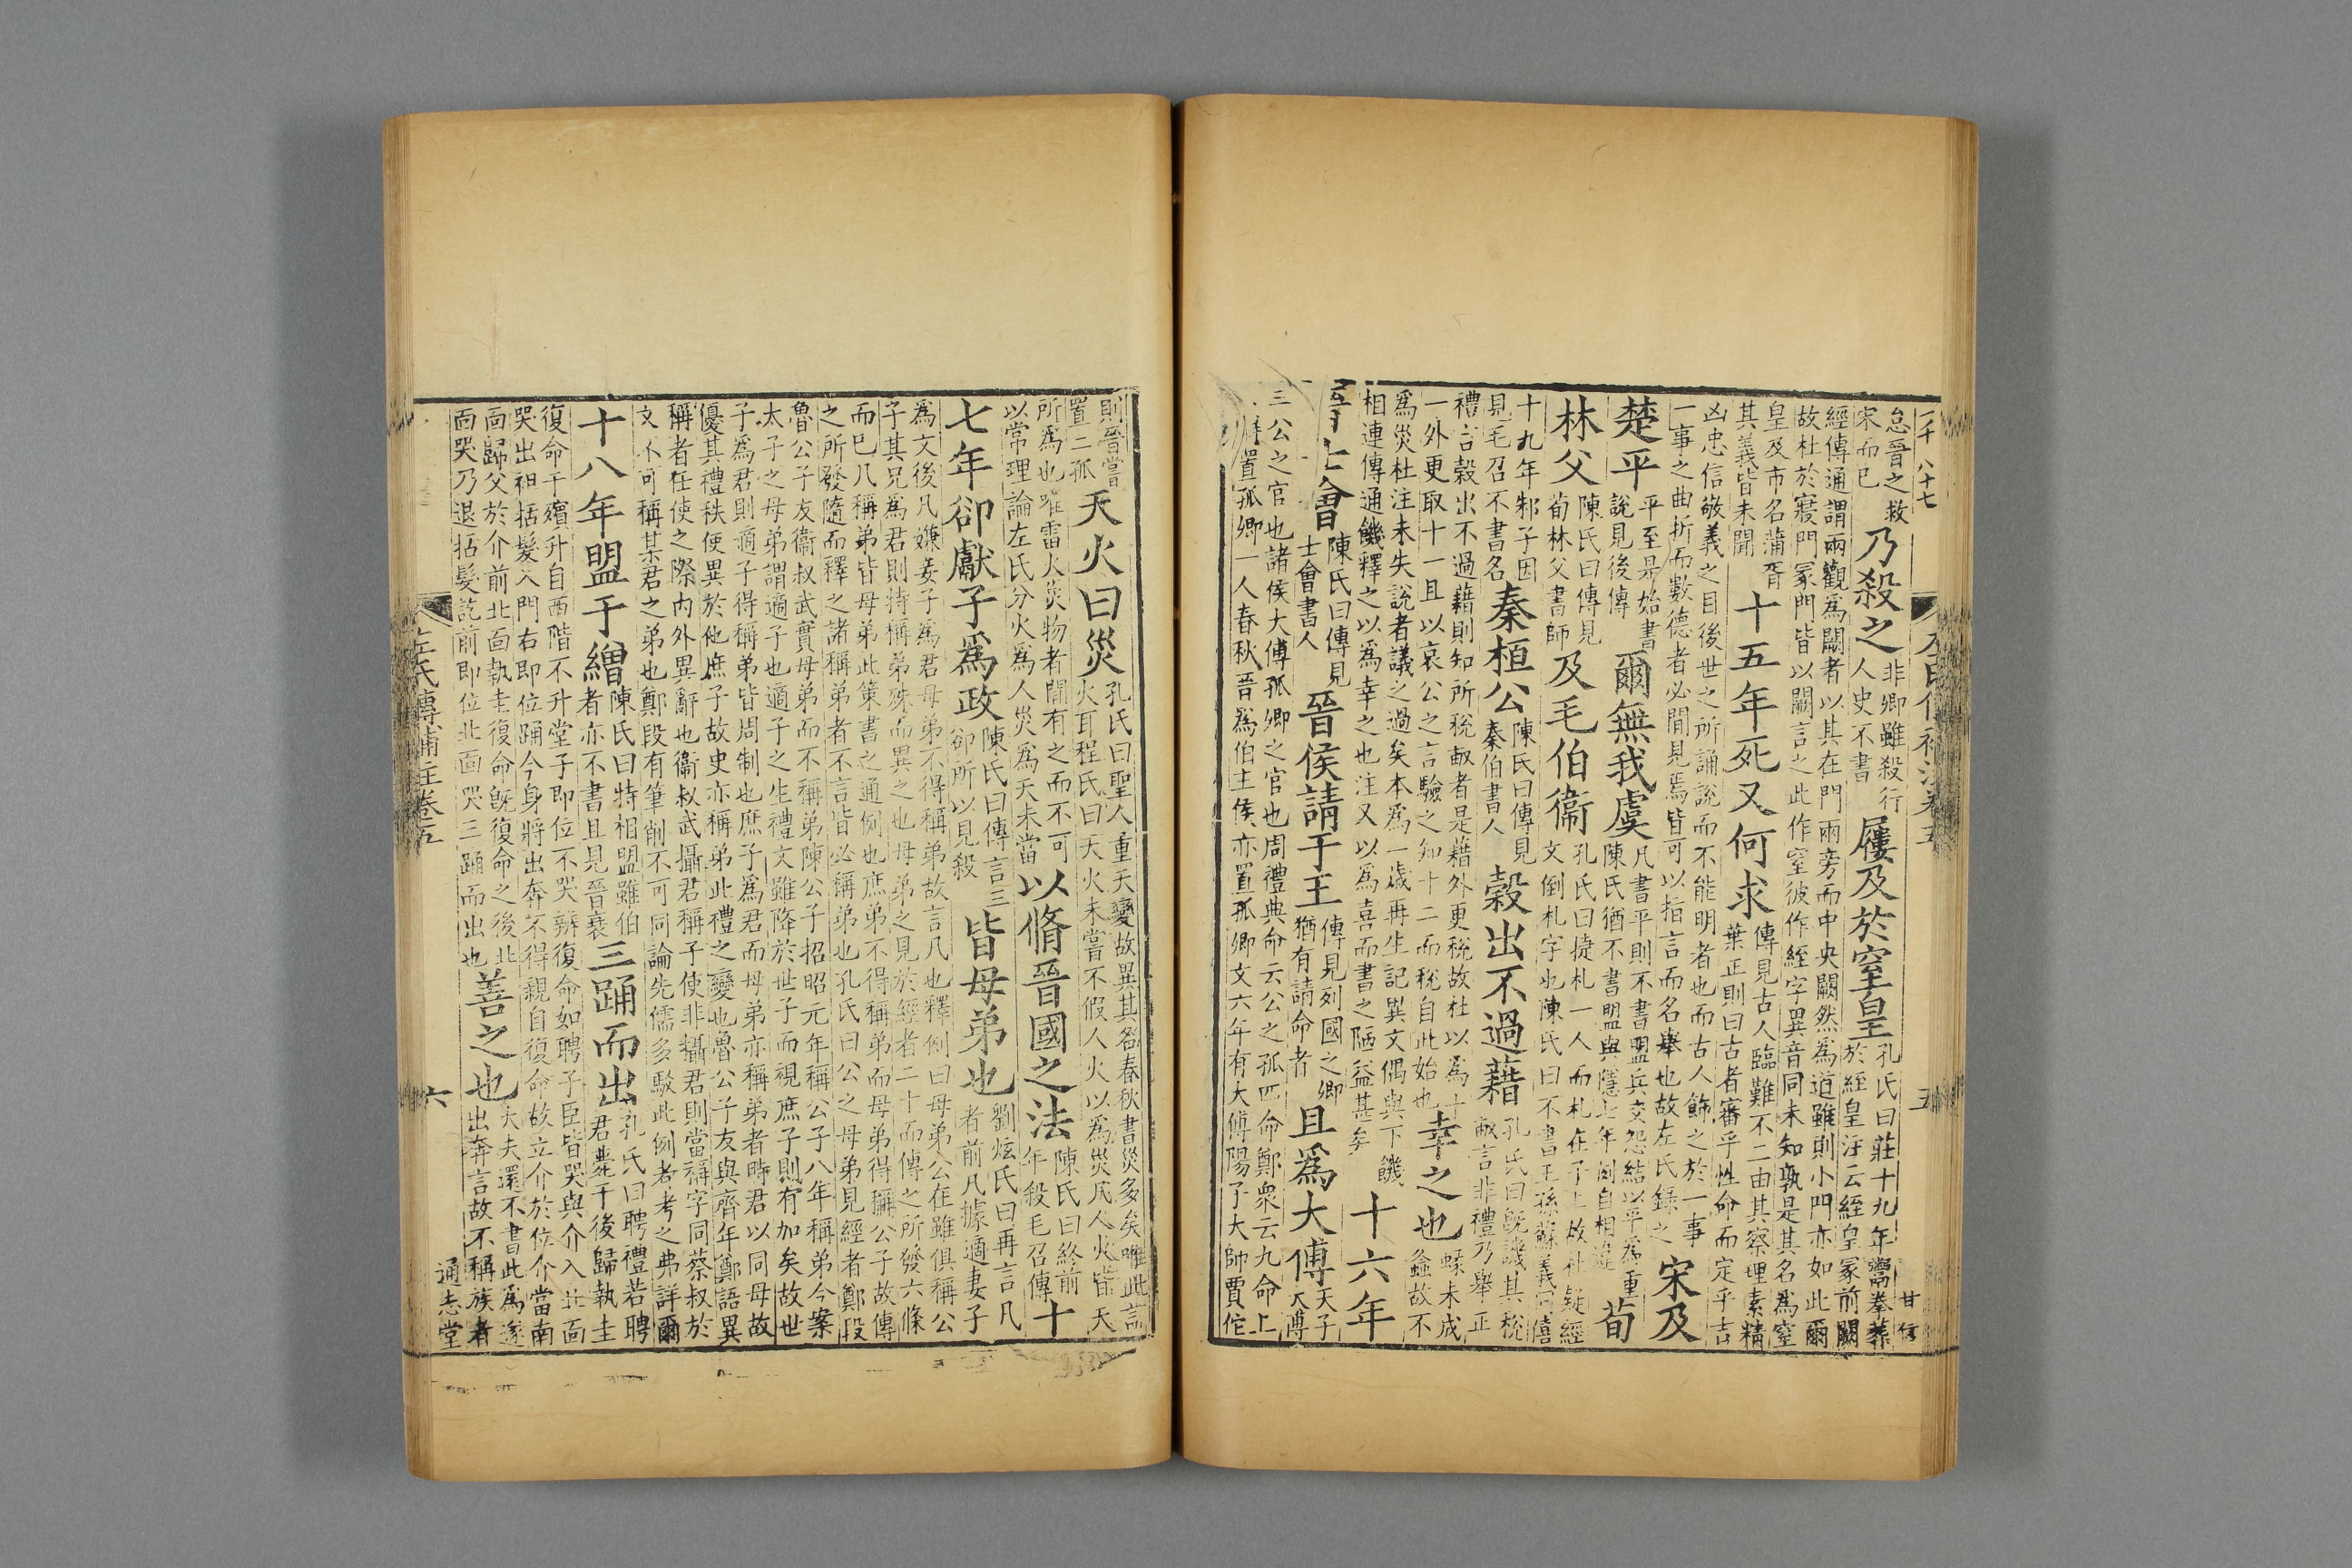 二千八十七
左氏傳補注卷五
五
甘信
怠晉之救
宋而已
乃殺之
非卿雖殺行
人史不書
屨及於窒皇
孔氏曰莊十九年鬻拳葬
於絰皇注云絰皇冢前闕
經傳通謂兩觀為闕者以其在門兩旁而中央闕然為道雖則小門亦如此爾
故杜於寢門冢門皆以闕言之此作窒彼作絰字異音同未知孰是其名為窒
皇及市名蒲胥
其義皆未聞
十五年死又何求
傳見古人臨難不二由其察理素精
葉正則曰古者審乎性命而定乎吉
凶忠信敬義之目後世之所誦說而不能明者也而古人飾之於一事
一事之曲折而數德者必閒見焉皆可以指言而名舉也故左氏錄之
宋及
楚平
平至是始書
說見後傳
爾無我虞
凡書平則不書盟兵交怨結以平為重
陳氏猶不書盟與隱七年例自相違
荀
林父
陳氏曰傳見
荀林父書師
及毛伯衞
孔氏曰捷札一人而札在子上故杜疑經
文倒札字也陳氏曰不書王孫蘇義同僖
十九年邾子因
見毛召不書名
秦桓公
陳氏曰傳見
秦伯書人
穀出不過藉
孔氏曰旣譏其稅
畝言非禮乃舉正
禮言穀出不過藉則知所稅畝者是藉外更稅故杜以為十
一外更取十一且以哀公之言驗之知十二而稅自此始也
幸之也
蝝未成
螽故不
為災杜注未失說者議之過矣本為一歲再生記異文偶與下饑
相連傳通饑釋之以為幸之也注又以為喜而書之陋益甚矣
十六年
晉士會
陳氏曰傳見
士會書人
晉侯請于王
傳見列國之卿
猶有請命者
且為大傅
天子
大傅
三公之官也諸侯大傅孤卿之官也周禮典命云公之孤四命鄭衆云九命上
置孤卿一人春秋晉為伯主侯亦置孤卿文六年有大傅陽子大師賈佗
則晉嘗
置二孤
天火曰災
孔氏曰聖人重天變故異其名春秋書災多矣唯此言
火耳程氏曰天火未嘗不假人火以為災凡人火皆天
所為也唯雷火災物者閒有之而不可
以常理論左氏分火為人災為天未當
以脩晉國之法
陳氏曰終前
年殺毛召傳
十
七年卻獻子為政
陳氏曰傳言三
卻所以見殺
皆母弟也
劉炫氏曰再言凡
者前凡據適妻子
為文後凡嫌妾子為君母弟不得稱弟故言凡也釋例曰母弟公在雖俱稱公
子其兄為君則特稱弟殊而異之也母弟之見於經者二十而傳之所發六條
而已凡稱弟皆母弟此策書之通例也庶弟不得稱弟而母弟得稱公子故傳
之所發隨而釋之諸稱弟者不言皆必稱弟也孔氏曰公之母弟見經者鄭段
魯公子友衞叔武實母弟而不稱弟陳公子招昭元年稱公子八年稱弟今案
太子之母弟謂適子也適子之生禮文雖降於世子而視庶子則有加矣故世
子為君則適子得稱弟皆周制也庶子為君而母弟亦稱弟者時君以同母故
優其禮秩便異於他庶子故史亦稱弟此禮之變也魯公子友與齊年鄭語異
稱者在使之際內外異辭也衞叔武攝君稱子使非攝君則當稱字同蔡叔於
文不可稱某君之弟也鄭段有筆削不可同論先儒多駮此例者考之弗詳爾
十八年盟于繒
陳氏曰特相盟雖伯
者亦不書且見晉衰
三踊而出
孔氏曰聘禮若聘
君薨于後歸執圭
復命于殯升自西階不升堂子即位不哭辨復命如聘子臣皆哭與介入北面
哭出袒括髮入門右即位踊今身將出奔不得親自復命故立介於位介當南
面歸父於介前北面執圭復命旣復命之後北
面哭乃退括髮訖前即位北面哭三踊而出也
善之也
大夫還不書此為遂
出奔言故不稱族者
左氏傳補注卷五
六
通志堂